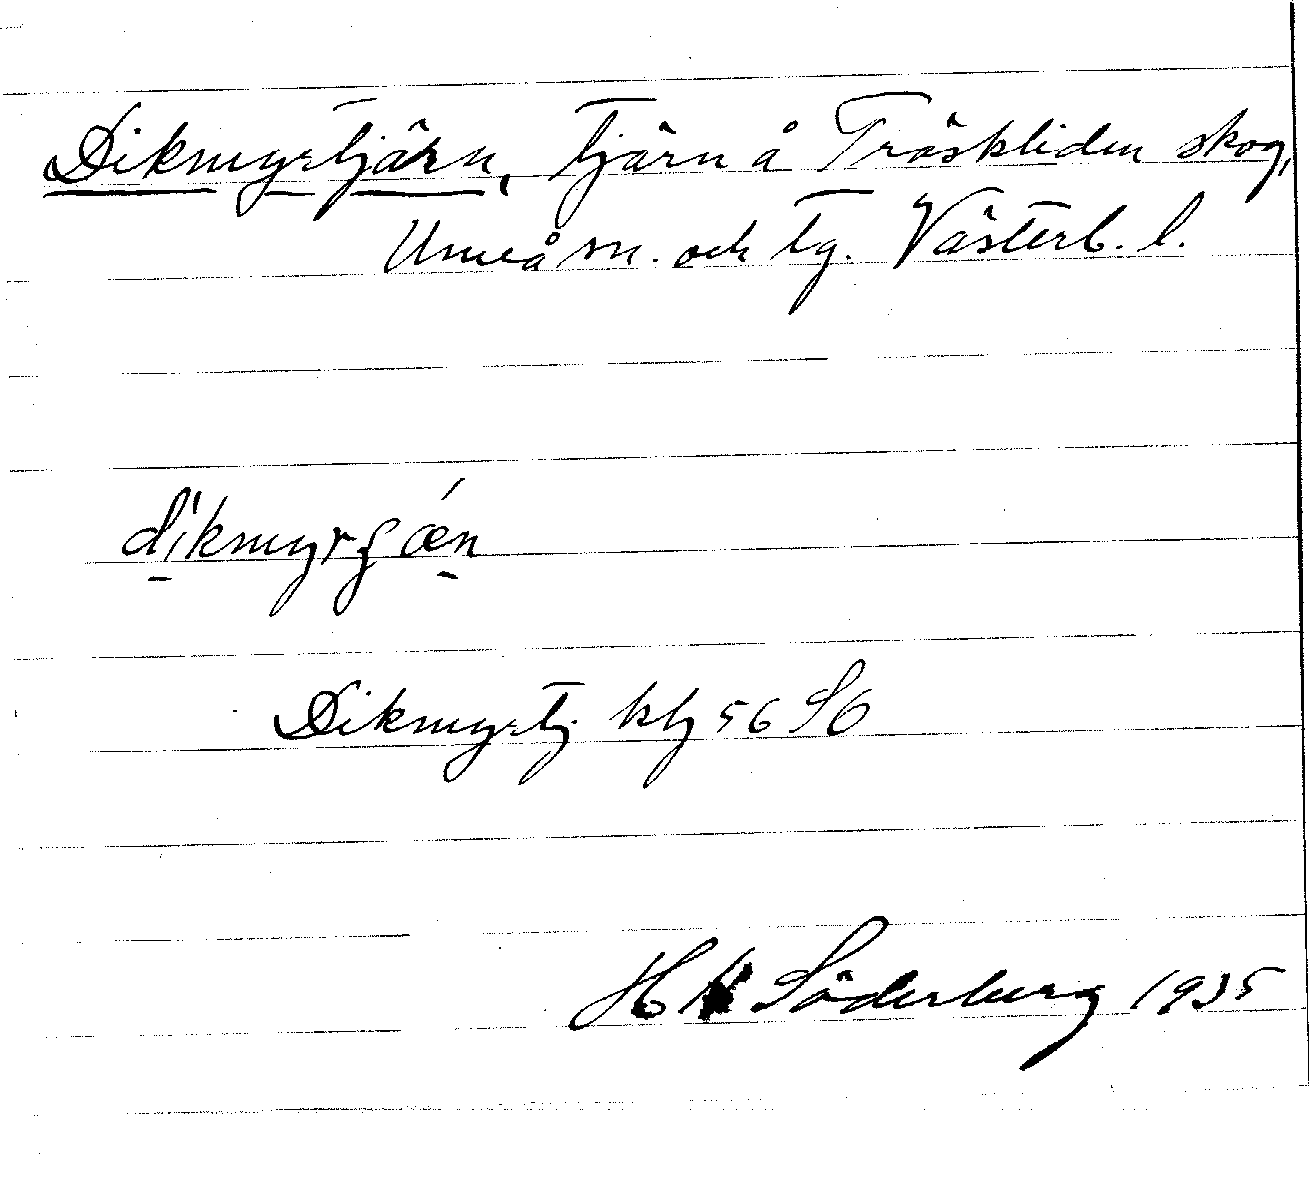 Dikmyrtjärn, tjärn å Träskliden skog,
Umeå sn. och tg. Västerb. l.
dikmyrʃǽn
Dikmyrtj. kbl 56 SO
H Söderberg 1935